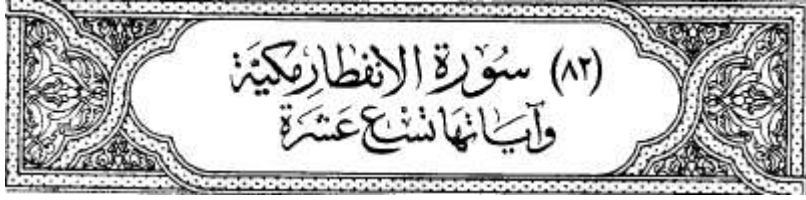 (٨٢) سُورَة الانفطار مكيَّة
وآياتها تسع عَشَرة